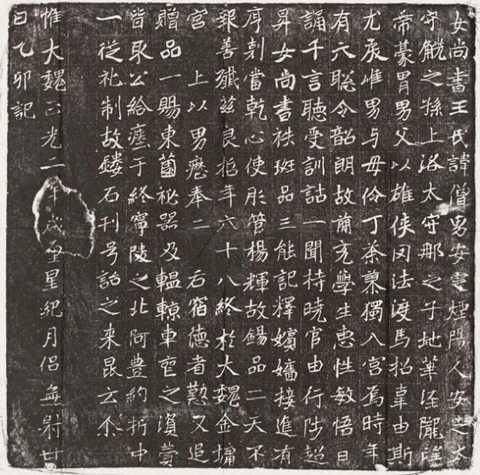 女尚書王氏諱僧男安定煙陽人安定太
守觥之孫上洛太守那之子地華涇隴
帝豪胄男父以雄俠罔法渡馬招辜由斯
尤戾唯男与母伶丁荼蓼獨入宮焉時年
有六聡令韶朗故簡充學生惠性敏悟日
誦千言聽受訓詁一聞持曉官由行陟超
昇女尚書秩班品三能記釋嬪嬙接進有
序剋當乾心使彤管楊輝故錫品二天不
報善殲茲良哲年六十八終於大魏金墉
宮 上以男歷奉二 后宿德者勤又追
贈品一賜東薗秘器及轀輬車喪之資費
皆取公給瘞于終寧陵之北阿豊約折中
一從礼制故鐫石刊号詒之来昆云尒
惟大魏正光二年歲在星紀月侣無射廿
日乙卯記